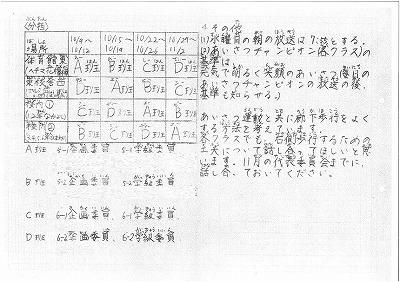 〈分担〉
場所 10/9〜10/12 10/15〜10/19 10/22〜10/26 10/29〜11/2
体育館裏 A班 B班 C班 D班
D班 A班 B班 C班
校内① C班 D班 A班 B班
校内② B班 C班 D班 A班
A班 6-1企画委員、5-1学級委員
B班 5-2企画委員、5-2学級委員
C班 6-1企画委員、6-1学級委員
D班 6-2企画委員、6-2学級委員
4 その他
(1)水曜日の朝の放送は7:55とする。
(2)あいさつチャンピオン(各クラス)の
基準は、
元気で明るく笑顔のあいさつ
あいさつチャンピオンの放送の後、
基準も知らせる。)
あいさつ運動と共に廊下歩行をよく
する方法を考えています。
各クラスでも、右側歩行するための
工夫について話し合ってほしいと思
います。11月の代表委員会までに、
話し合っておいてください。